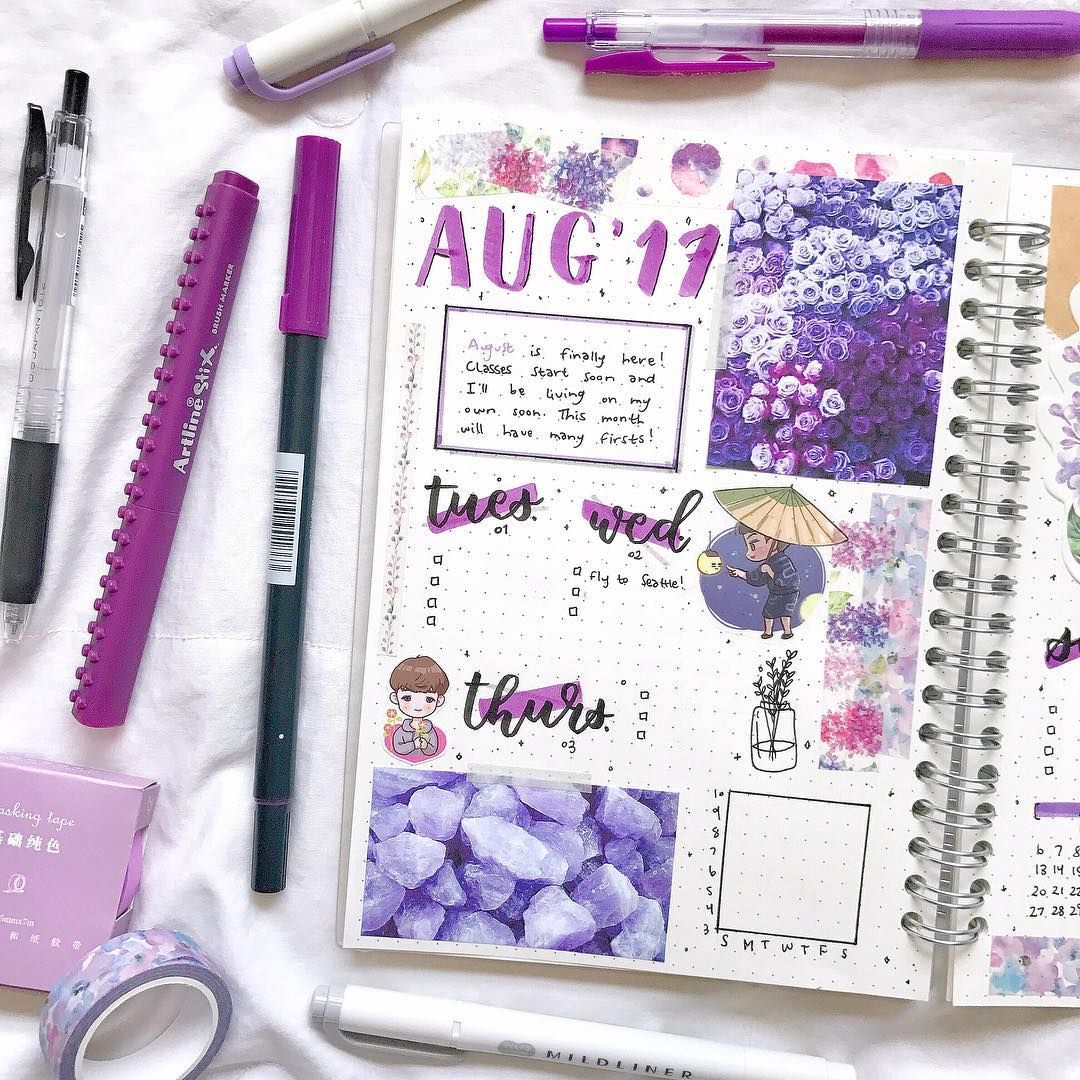 AUG'17
August is finally here!
Classes start soon and
I'll be living on my
own soon. This month
will have many firsts!
tues.
01
wed
02
fly to Seattle!
thurs.
03
10
9
8
7
6
5
4
3
S M T W T F S
6 7 8
13 14 15
20 21 22
27 28 29
Artline Stix
BRUSH MARKER
masking tape
基础纯色
和纸胶带
MILDLINER